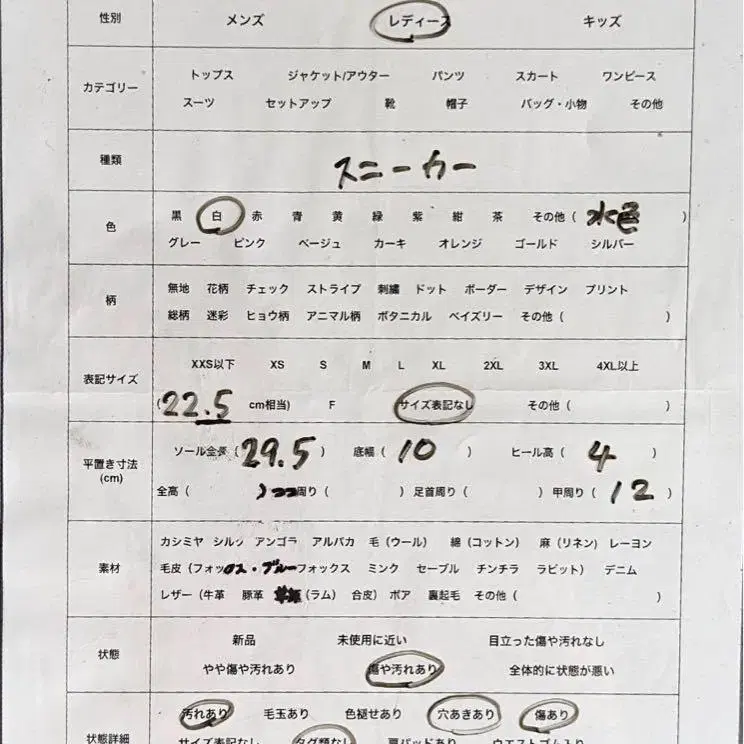 性別 メンズ レディース キッズ
カテゴリー トップス ジャケット/アウター パンツ スカート ワンピース
スーツ セットアップ 靴 帽子 バッグ・小物 その他
種類 スニーカー
色 黒 白 赤 青 黄 緑 紫 紺 茶 その他 ( 水色 )
グレー ピンク ベージュ カーキ オレンジ ゴールド シルバー
柄 無地 花柄 チェック ストライプ 刺繍 ドット ボーダー デザイン プリント
総柄 迷彩 ヒョウ柄 アニマル柄 ボタニカル ペイズリー その他 ( )
表記サイズ XXS以下 XS S M L XL 2XL 3XL 4XL以上
(22.5 cm相当) F サイズ表記なし その他 ( )
平置き寸法 (cm) ソール全長 ( 29.5 ) 底幅 ( 10 ) ヒール高 ( 4 )
全高 ( ) 周り ( ) 足首周り ( ) 甲周り ( 12 )
素材 カシミヤ シルク アンゴラ アルパカ 毛 (ウール) 綿 (コットン) 麻 (リネン) レーヨン
毛皮 (フォックス・ブルーフォックス ミンク セーブル チンチラ ラビット) デニム
レザー (牛革 豚革 (ラム) 合皮) ボア 裏起毛 その他 ( )
状態 新品 未使用に近い 目立った傷や汚れなし
やや傷や汚れあり 傷や汚れあり 全体的に状態が悪い
状態詳細 汚れあり 毛玉あり 色褪せあり 穴あきあり 傷あり
サイズ表記なし タグ類なし 肩パッドあり ウエストゴム入り